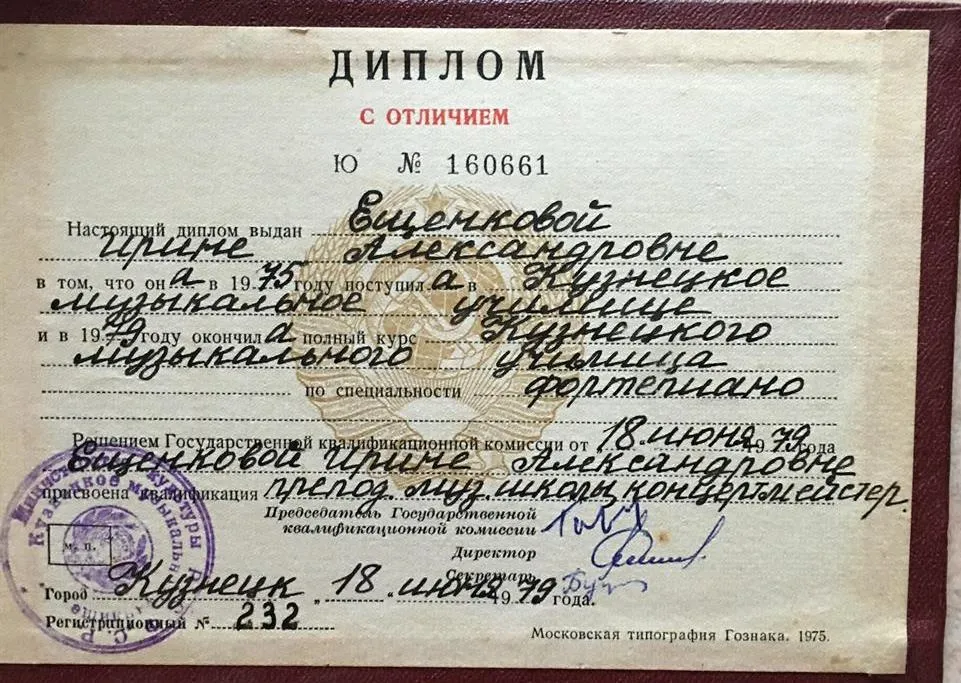 ДИПЛОМ
С ОТЛИЧИЕМ
Ю № 160661
Настоящий диплом выдан Ещенковой
Ирине Александровне
в том, что она в 1975 году поступила в Кузнецкое
музыкальное училище
и в 1979 году окончила полный курс Кузнецкого
музыкального училища
по специальности фортепиано
Решением Государственной квалификационной комиссии от 18 июня 1979 года
Ещенковой Ирине Александровне
присвоена квалификация препод. муз. школы, концертмейстер.
Председатель Государственной
квалификационной комиссии
Директор
Секретарь
М. П.
Город Кузнецк „18“ июня 1979 года.
Регистрационный № 232
Московская типография Гознака. 1975.